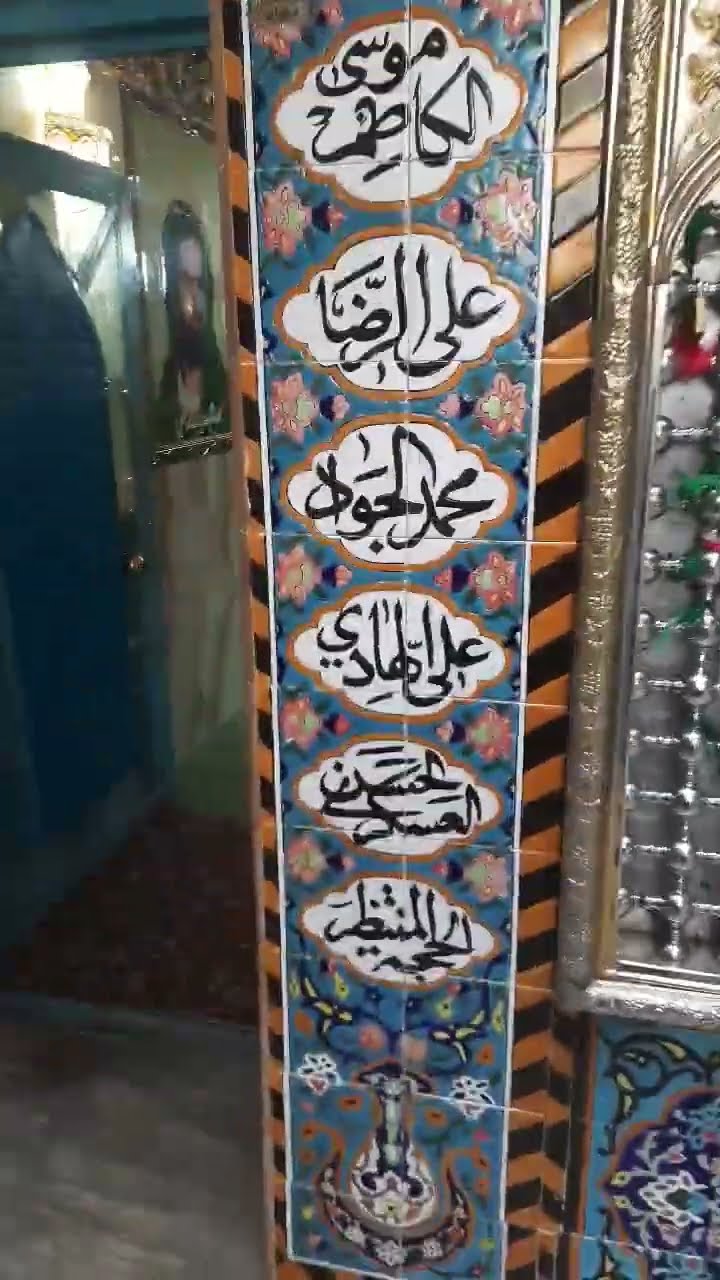 موسى
الكاظم
علي الرضا
محمد الجواد
علي الهادي
الحسن
العسكري
الحجة المنتظر